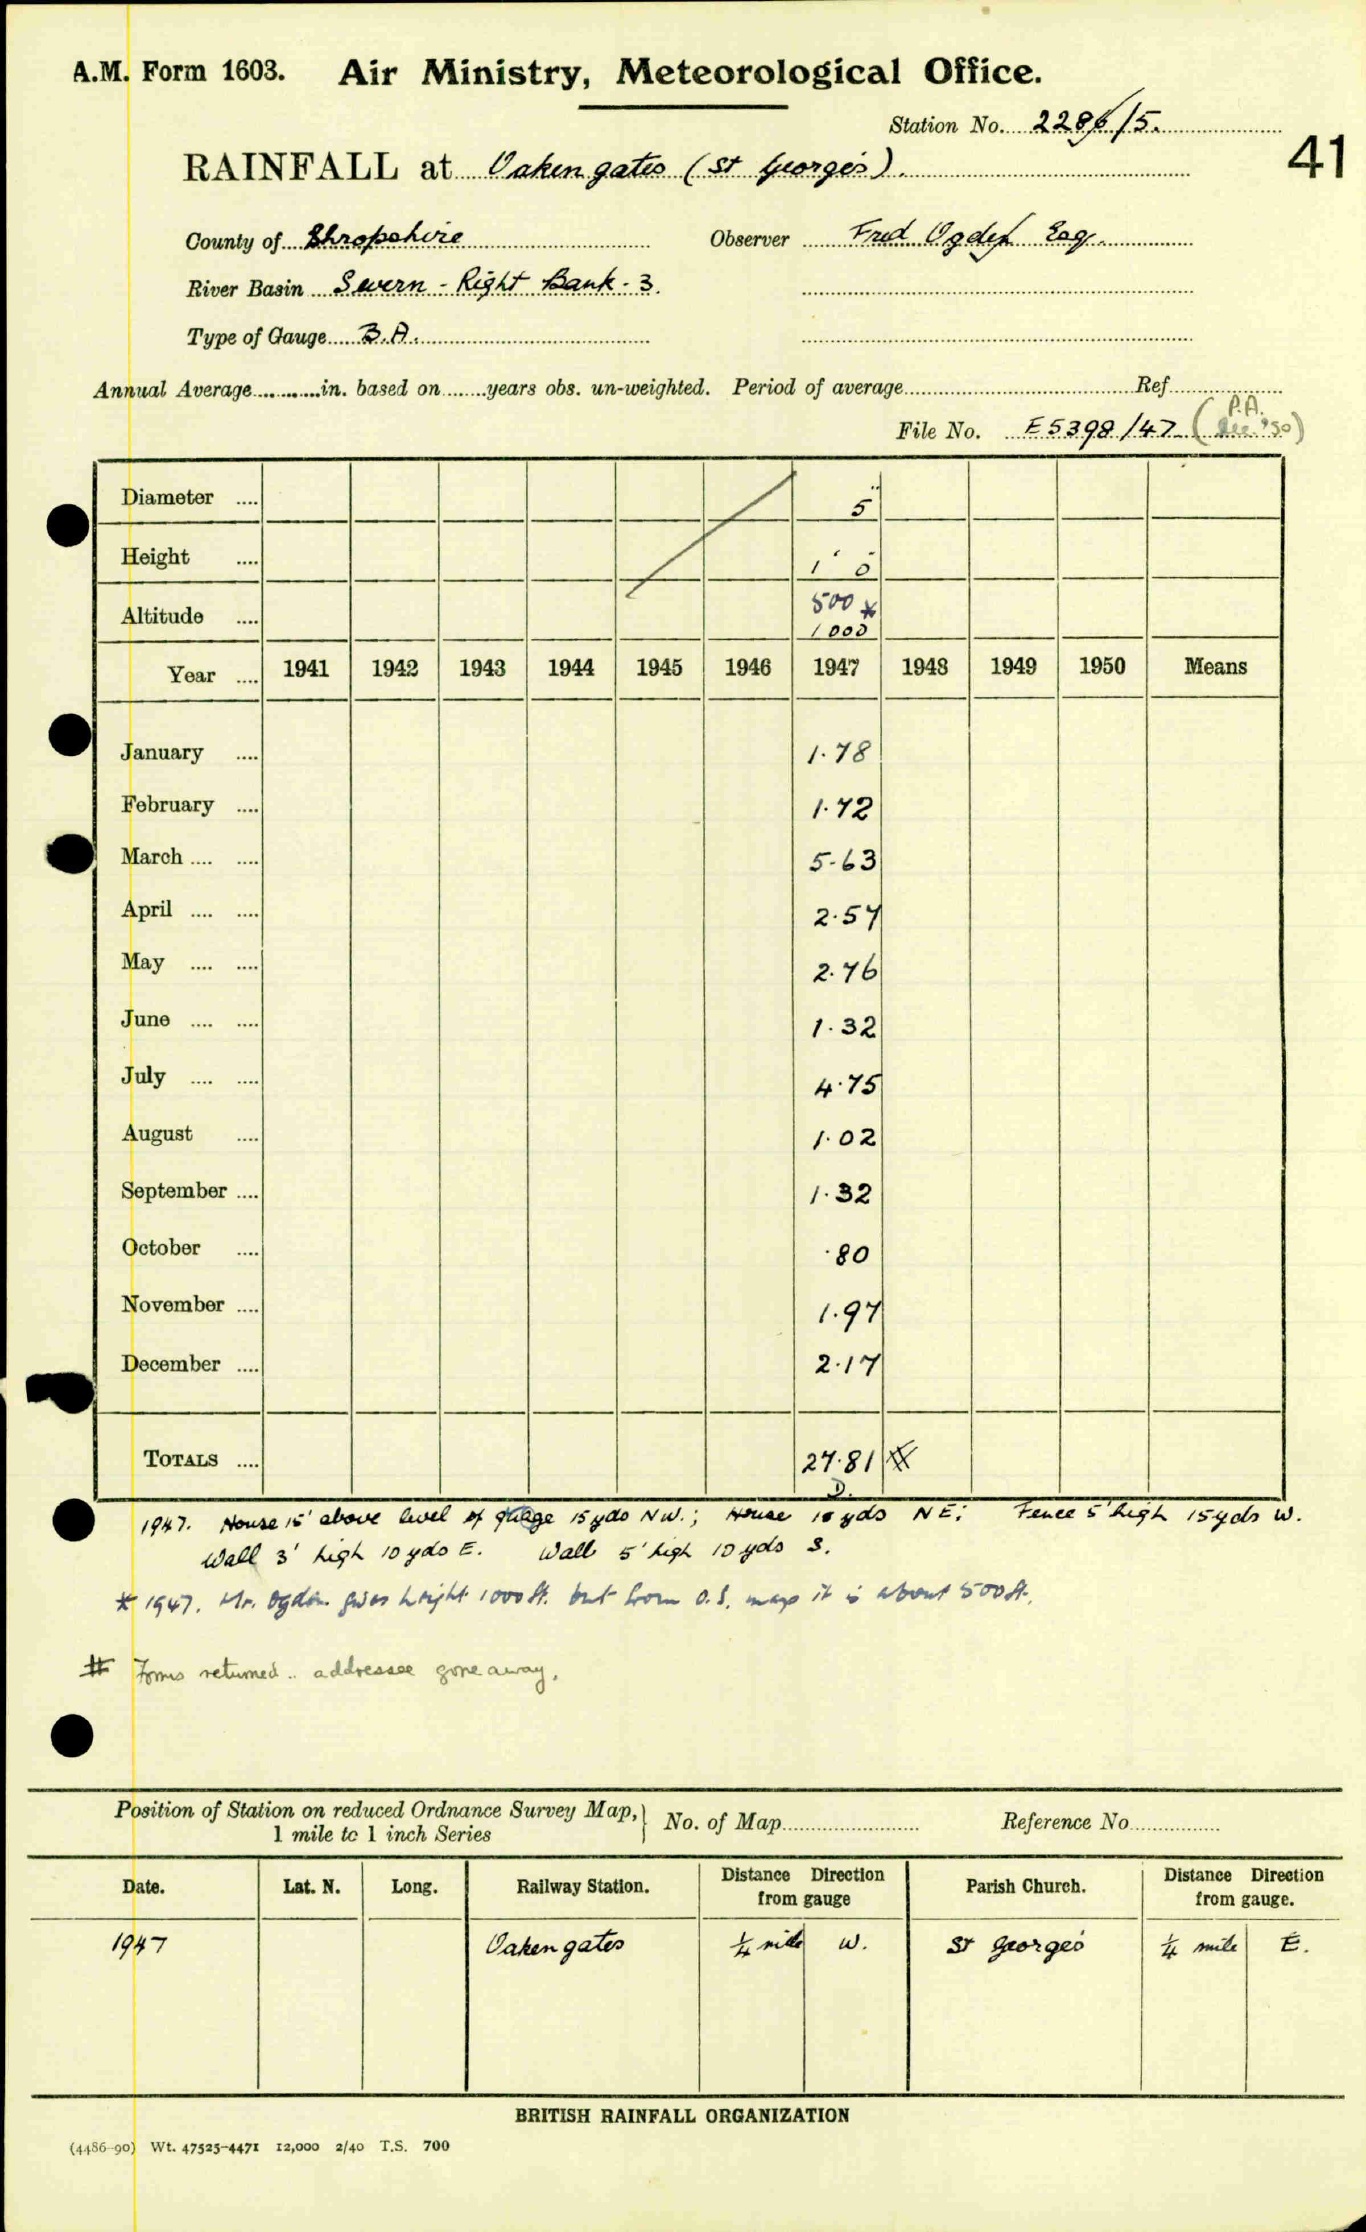 A.M. Form 1603. Air Ministry, Meteorological Office.
Station No. 2286/5.
41
RAINFALL at Oakengates (St George's).
County of Shropshire Observer Fred Ogden Esq.
River Basin Severn - Right Bank - 3.
Type of Gauge B.A.
Annual Average in. based on years obs. un-weighted. Period of average Ref
File No. E5398/47 (P.A. Dec. '50)
Diameter 5"
Height 1' 0"
Altitude 500 *
1000
Year 1941 1942 1943 1944 1945 1946 1947 1948 1949 1950 Means
January 1.78
February 1.72
March 5.63
April 2.57
May 2.76
June 1.32
July 4.75
August 1.02
September 1.32
October .80
November 1.97
December 2.17
TOTALS 27.81 #
D.
1947. House 15' above level of gauge 15 yds NW.; House 10 yds NE; Fence 5' high 15 yds W.
Wall 3' high 10 yds E. Wall 5' high 10 yds S.
* 1947. Mr. Ogden gives height 1000 ft. but from O.S. map it is about 500 ft.
# Forms returned.. addressee gone away.
Position of Station on reduced Ordnance Survey Map, } No. of Map Reference No
1 mile to 1 inch Series
Date. Lat. N. Long. Railway Station. Distance Direction from gauge Parish Church. Distance Direction from gauge.
1947 Oakengates ¼ mile W. St George's ¼ mile E.
BRITISH RAINFALL ORGANIZATION
(4486-90) Wt. 47525-4471 12,000 2/40 T.S. 700